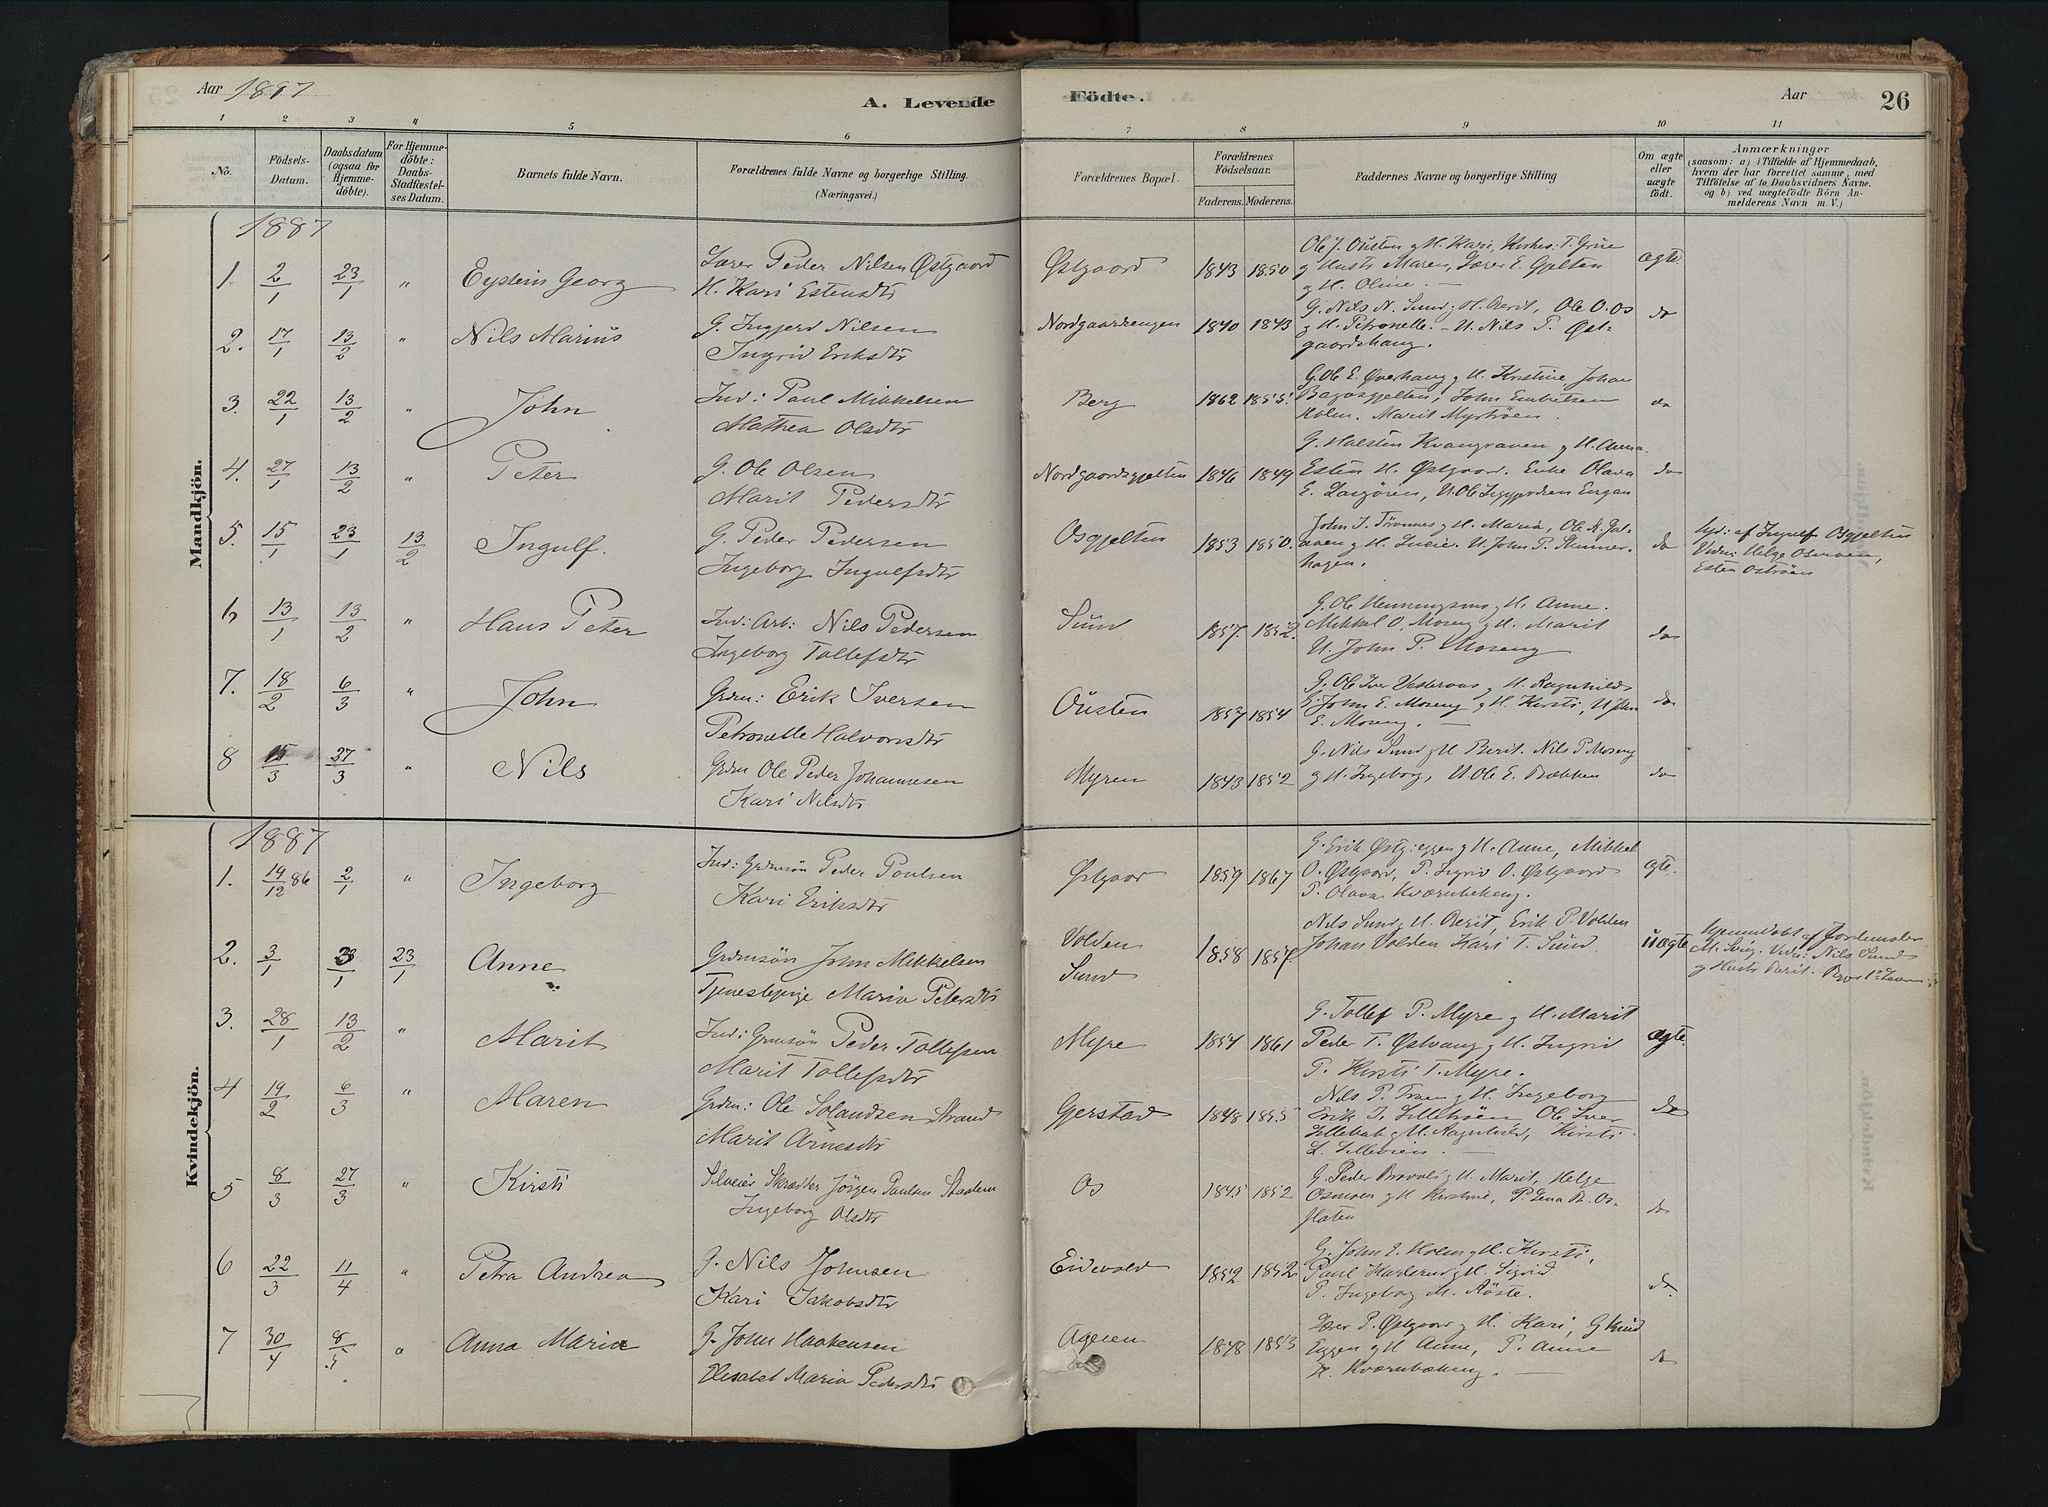 Aar 1887
A. Levende Födte.
Aar 26
1 2 3 4 5 6 7 8 9 10 11
No.
Födsels-Datum.
Daabsdatum (ogsaa for Hjemme-döbte).
For Hjemme-döbte: Daabs-Stadfæstel-ses Datum.
Barnets fulde Navn.
Forældrenes fulde Navne og borgerlige Stilling.
(Næringsvei.)
Forældrenes Bopæl.
Forældrenes Födselsaar.
Faderens. Moderens.
Faddernes Navne og borgerlige Stilling
Om ægte eller uægte födt.
Anmærkninger
(saasom: a) i Tilfælde af Hjemmedaab,
hvem der har forrettet samme, med
Tilföielse af to Daabsvidners Navne,
og b) ved uægtefödte Börn An-
melderens Navn m. V.)
Mandkjön.
1887
1. 2/1 23/1 " Eystein Georg Lærer Peder Nilsen Østgaard Østgaard 1843 1850 ægte
H. Kari Estensdtr
Ole J. Ousten g H. Kari, Kirkes: T. Grue
g Hustr Maren, Lærer E. Gjelten
g H. Oline. —
2. 17/1 13/2 " Nils Marius G. Ingjerd Nilsen Nordgaardsengen 1840 1843 do
Ingrid Eriksdtr
G. Nils N. Sund g H. Berit, Ole O. Os
g H. Petronelle. — U. Nils P. Øst-
gaardshaug.
3. 22/1 13/2 " John Ind: Paul Mikkelsen Berg 1862 1855. do
Mathea Olsdtr
G. Ole E. Øverhaug g H. Kirstine, Johan
Holm. Marit Myrhöen.
4. 27/1 13/2 " Peter G. Ole Olsen Nordgaardsgjelten 1846 1849 do
Marit Pedersdtr
G. Halsten Kvangraven g H. Anna.
Esten H. Østgaard. Enke Olava
5. 15/1 23/1 13/2 Ingulf. G. Peder Pedersen Osgjelten 1853 1850. do
Ingeborg Ingulfsdtr
John J. Trönnes g H. Maria, Ole R. Gal-
aaen g H. Lucie. U. John P. Stenner-
hagen.
hjd: af Ingulf Osgjelten
Vidn: Helge Osmoen,
Esten Oströen
6 13/1 13/2 " Hans Peter Ind: Arb: Nils Pedersen Sund 1857. 1852. do
Ingeborg Tollefsdtr
G. Ole Henningsmo g H. Anne.
Mikkel O. Moseng g H. Marit
U. John P. Moseng
7. 18/2 6/3 " John Grdm: Erik Iversen Ousten 1857 1854 do
Petronelle Halvorsdtr
G. Ole Iver Vesteraas g H. Ragnhild
G. John E. Moseng g H. Kirsti, U. Jon
E. Moseng. —
8 15/3 27/3 " Nils Grdm Ole Peder Johannesen Myren 1843 1852 do
Kari Nilsdtr
G. Nils Sund g H Berit. Nils P. Moseng
g H. Ingeborg, U. Ole E. Bækken
Kvindekjön.
1887
1. 19/12 86 2/1 " Ingeborg Ind: Grdmsön Peder Paulsen Østgaar 1859 1867 ægte.
Kari Eriksdtr
G. Erik Østg:eggen g H. Anne, Mikkel
O. Østgaard, P. Ingrid O. Østgaard
P. Olava Kværnbekeng.
2. 3/1 3/1 23/1 Anne Grdmsön John Mikkelsen Volden 1858 1857. uægte
Tjenestepige Maria Petersdtr Sund
Nils Sund g H. Berit, Erik P. Volden
Johan Volden Kari T. Sund.
hjemmedöbt af Jordemoder
M. Svig. Vidn: Nils Sund
g Hustr Berit.
3. 28/1 13/2 " Marit Ind: Grmsön Peder Tollefsen Myre 1854 1861 ægte.
Marit Tollefsdtr
G. Tollef P. Myre g H. Marit
Peder T. Østvang g H. Ingrid
P. Kirsti T. Myre.
4 19/2 6/3 " Maren Grdm: Ole Solandsen Strand Gjerstad 1848 1855 do
Marit Arnesdtr
Nils P. Traen g H. Ingeborg
Erik J. Lillehöen Ole Iver
Lillebak g H. Ragnhild, Kirsti
5 8/3 27/3 " Kirsti Selveier Skrædder Jörgen Paulsen Os 1845 1852 do
Ingeborg Olsdtr
G. Peder Bravoli g H. Marit, Helge
Osmoen g H. Kirstine, P. Lena R. Os-
flaten
6 22/3 11/4 " Petra Andrea G. Nils Johnsen Eidsvold 1852 1852 do
Kari Jakobsdtr
G. John J. Holm g H. Kirsti,
Paul g H. Sigrid
P. Ingeborg M. Röste.
7 30/4 8/5 " Anna Maria G. John Haakensen Ageien 1848 1853 do
Elisabet Maria Pedersdtr
Lærer P. Østgaard g H. Kari, G Knud
Eggen g H Anne, P. Anne
H. Kværnbækeng. —